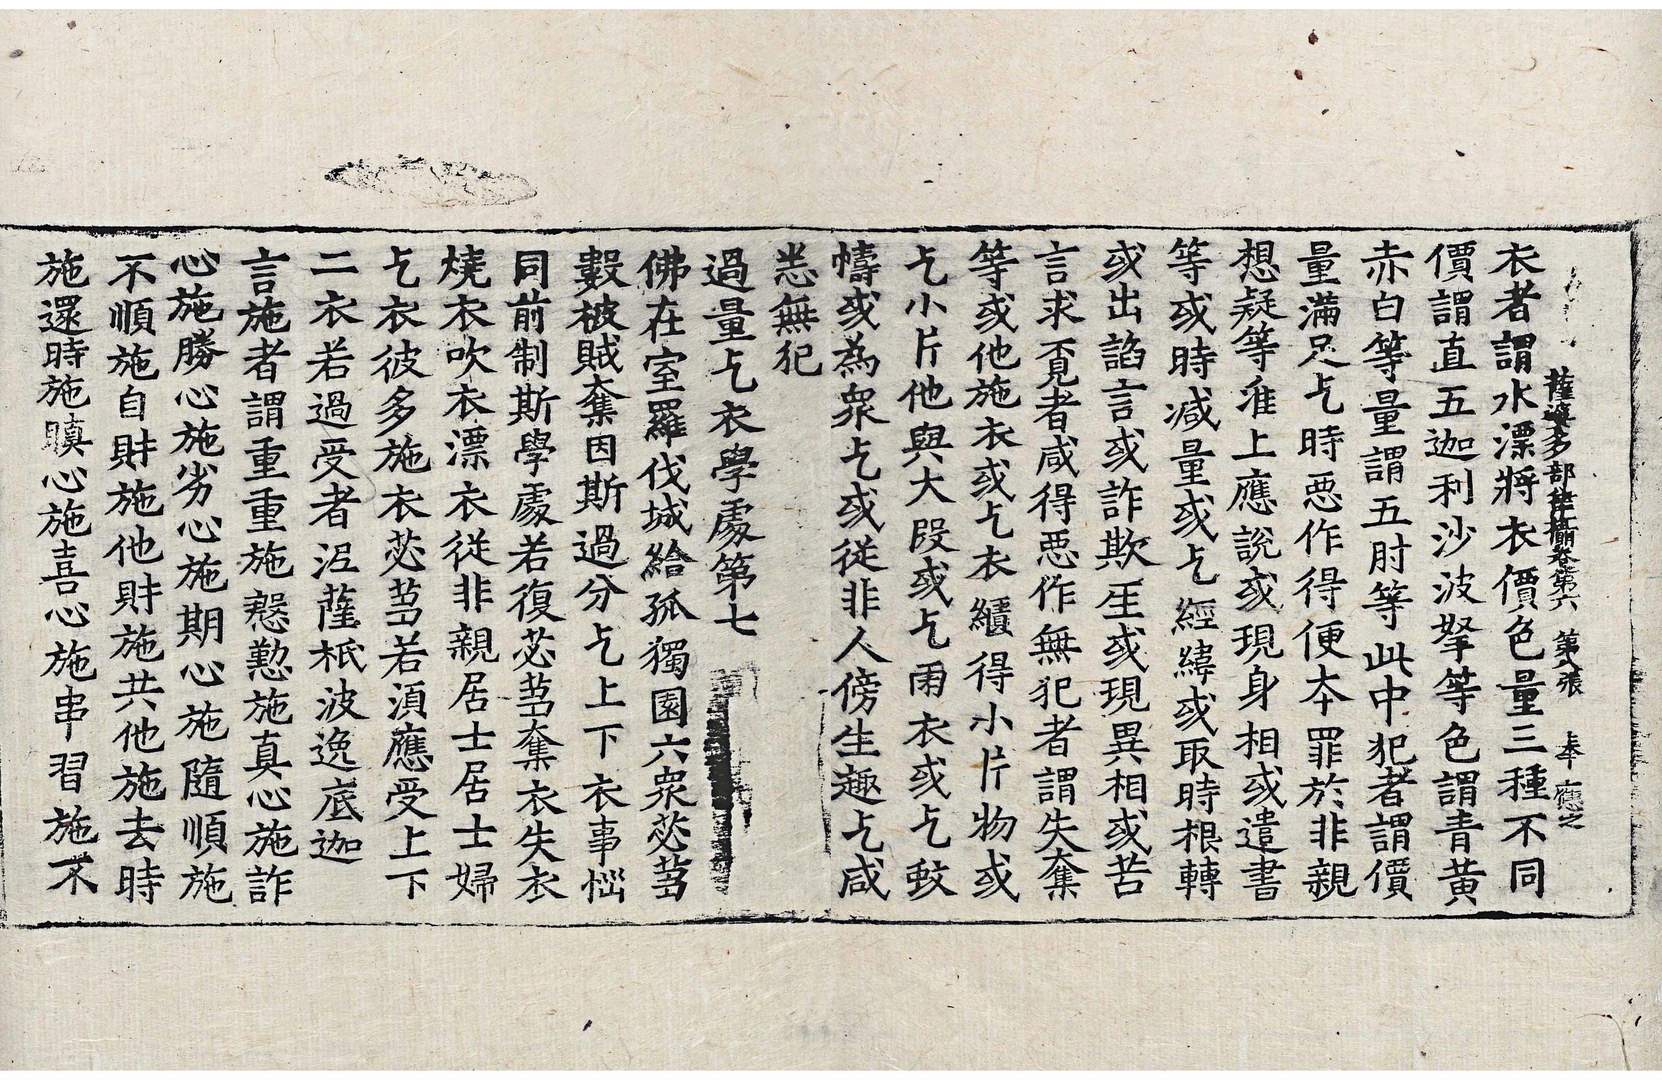 薩婆多部律攝卷第六 第八張 奉 應之
衣者謂水漂將衣價色量三種不同
價謂直五迦利沙波拏等色謂青黃
赤白等量謂五肘等此中犯者謂價
量滿足乞時惡作得便本罪於非親
想疑等准上應說或現身相或遣書
等或時減量或乞經緯或取時根轉
或出諂言或詐欺誑或現異相或苦
言求覓者咸得惡作無犯者謂失奪
等或他施衣或乞衣繼得小片物或
乞小片他與大段或乞雨衣或乞蚊
幬或為眾乞或從非人傍生趣乞咸
悉無犯
過量乞衣學處第七
佛在室羅伐城給孤獨園六眾苾芻
數被賊奪因斯過分乞上下衣事惱
同前制斯學處若復苾芻奪衣失衣
燒衣吹衣漂衣從非親居士居士婦
乞衣彼多施衣苾芻若須應受上下
二衣若過受者泥薩祇波逸底迦
言施者謂重重施慇懃施真心施詐
心施勝心施劣心施期心施隨順施
不順施自財施他財施共他施去時
施還時施瞋心施喜心施串習施不